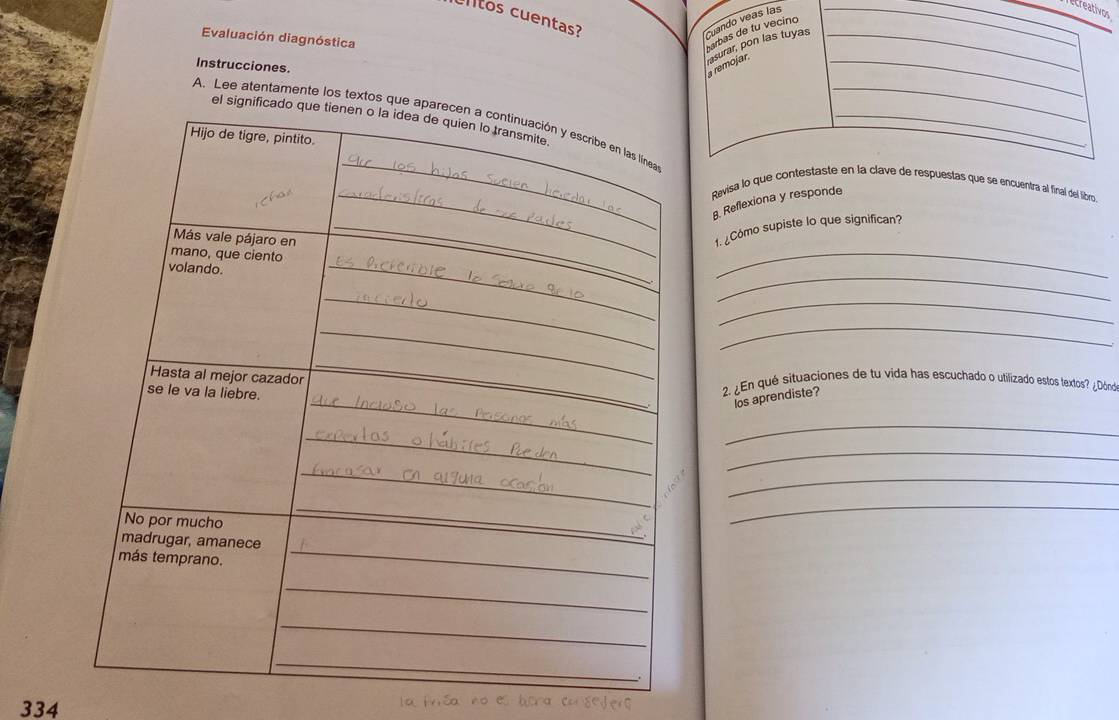 cuentas?
Evaluación diagnóstica
Instrucciones.
A. Lee atentamente los textos que aparecen a continuación y escribe en las líneas
el significado que tienen o la idea de quien lo transmite.
Hijo de tigre, pintito.
que los hijos suelen heredar las
características de sus padres
Más vale pájaro en
mano, que ciento
volando.
Es preferible lo seguro que lo
incierto
Hasta al mejor cazador
se le va la liebre.
que incluso las personas más
expertas o hábiles pueden
fracasar en alguna ocasión
No por mucho
madrugar, amanece
más temprano.
la prisa no es buena
334
recreativos
Cuando veas las
barbas de tu vecino
rasurar, pon las tuyas
a remojar.
Revisa lo que contestaste en la clave de respuestas que se encuentra al final del libro.
B. Reflexiona y responde
1. ¿Cómo supiste lo que significan?
2. ¿En qué situaciones de tu vida has escuchado o utilizado estos textos? ¿Dónde
los aprendiste?